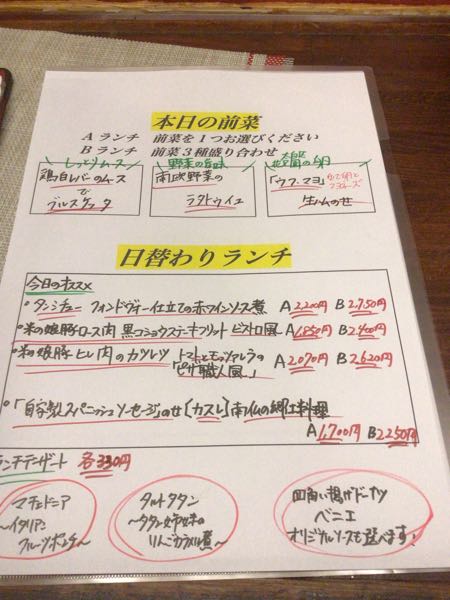 本日の前菜
Aランチ 前菜を1つお選びください
Bランチ 前菜3種盛り合わせ
しっとりムース 野菜の旨味
鶏白レバーのムース 南欧野菜の 「ウフ・マヨ」 ゆで卵と
で ラタトゥイユ マヨネーズ
ブルスケッタ 生ハムのせ
日替わりランチ
今日のオススメ
・タンシチュー フォンドヴォー仕立ての赤ワインソース煮 A2,200円 B2,750円
・米の娘豚ロース肉 黒コショウステーキフリット ビストロ風 A1,850円 B2,400円
・米の娘豚ヒレ肉のカツレツ トマトとモッツァレラの A2,070円 B2,620円
「ピザ職人風」
・「自家製スパニッシュソーセージ」のせ[カスレ]南仏の郷土料理
A1,700円 B2,250円
ランチデザート 各330円
マチェドニア タルトタタン 四角い揚げドーナツ
〜イタリアン 〜タタン姉妹の ベニエ
フルーツポンチ〜 りんごカラメル煮〜 オリジナルソースも選べます!